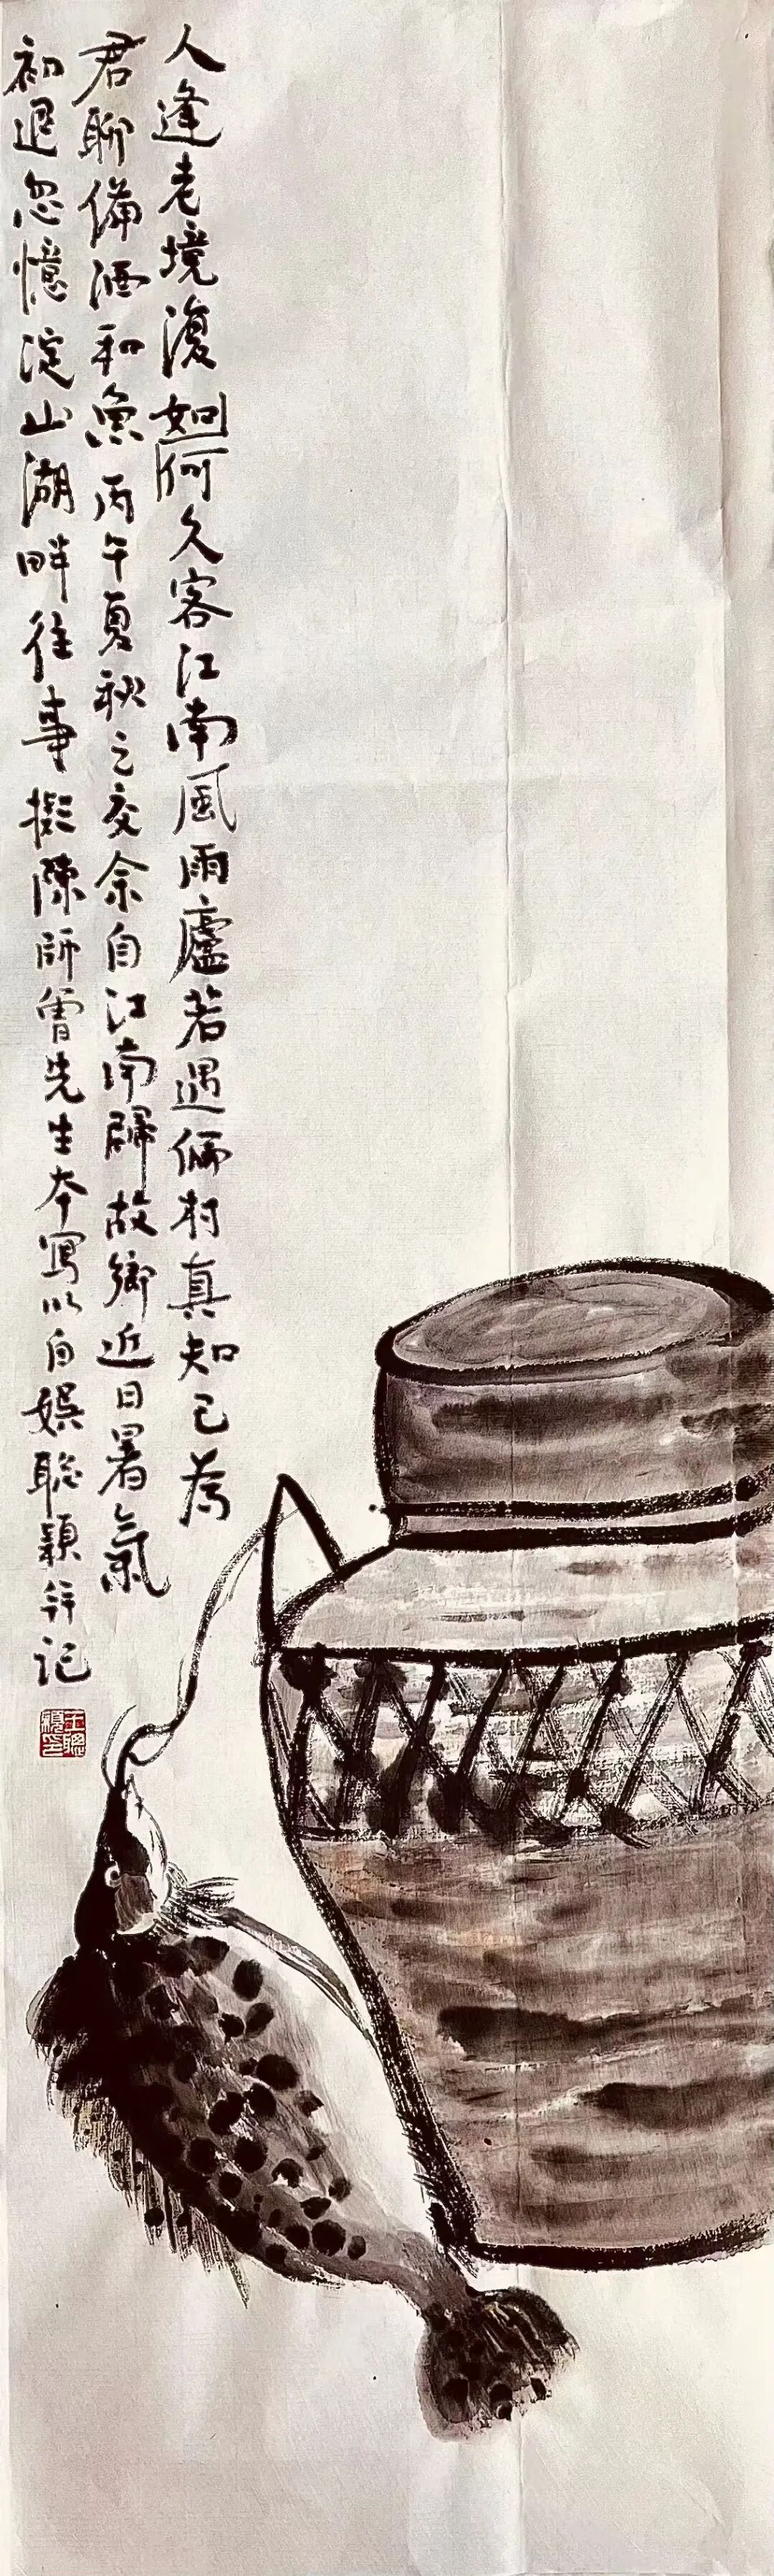 人逢老境復如何久客江南風雨廬若遇村真知己為
君聊備酒和魚丙午夏秋之交余自江南歸故鄉近日暑氣
初退忽憶淀山湖畔往事擬陳師曾先生本寫以自娛聰穎并記
王聰穎印